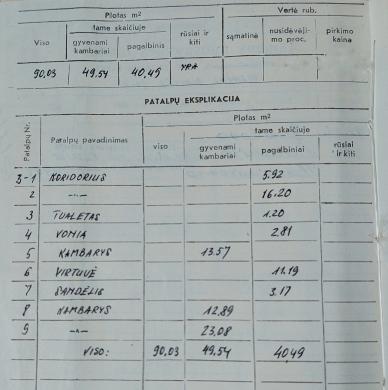 Plotas m² Vertė rub.
Viso tame skaičiuje rūsiai ir kiti sąmatinė nusidėvėji-mo proc. pirkimo kaina
gyvenami kambariai pagalbinis
90,03 49,54 40,49 YRA
PATALPŲ EKSPLIKACIJA
Patalpų Nr. Patalpų pavadinimas Plotas m²
viso tame skaičiuje rūsiai ir kiti
gyvenami kambariai pagalbiniai
3-1 KORIDORIUS 5.92
2 -"- 16.20
3 TUALETAS 1.20
4 VONIA 2.81
5 KAMBARYS 13.57
6 VIRTUVĖ 11.19
7 SANDĖLIS 3.17
8 KAMBARYS 12,89
9 -"- 23,08
VISO: 90,03 49,54 4049